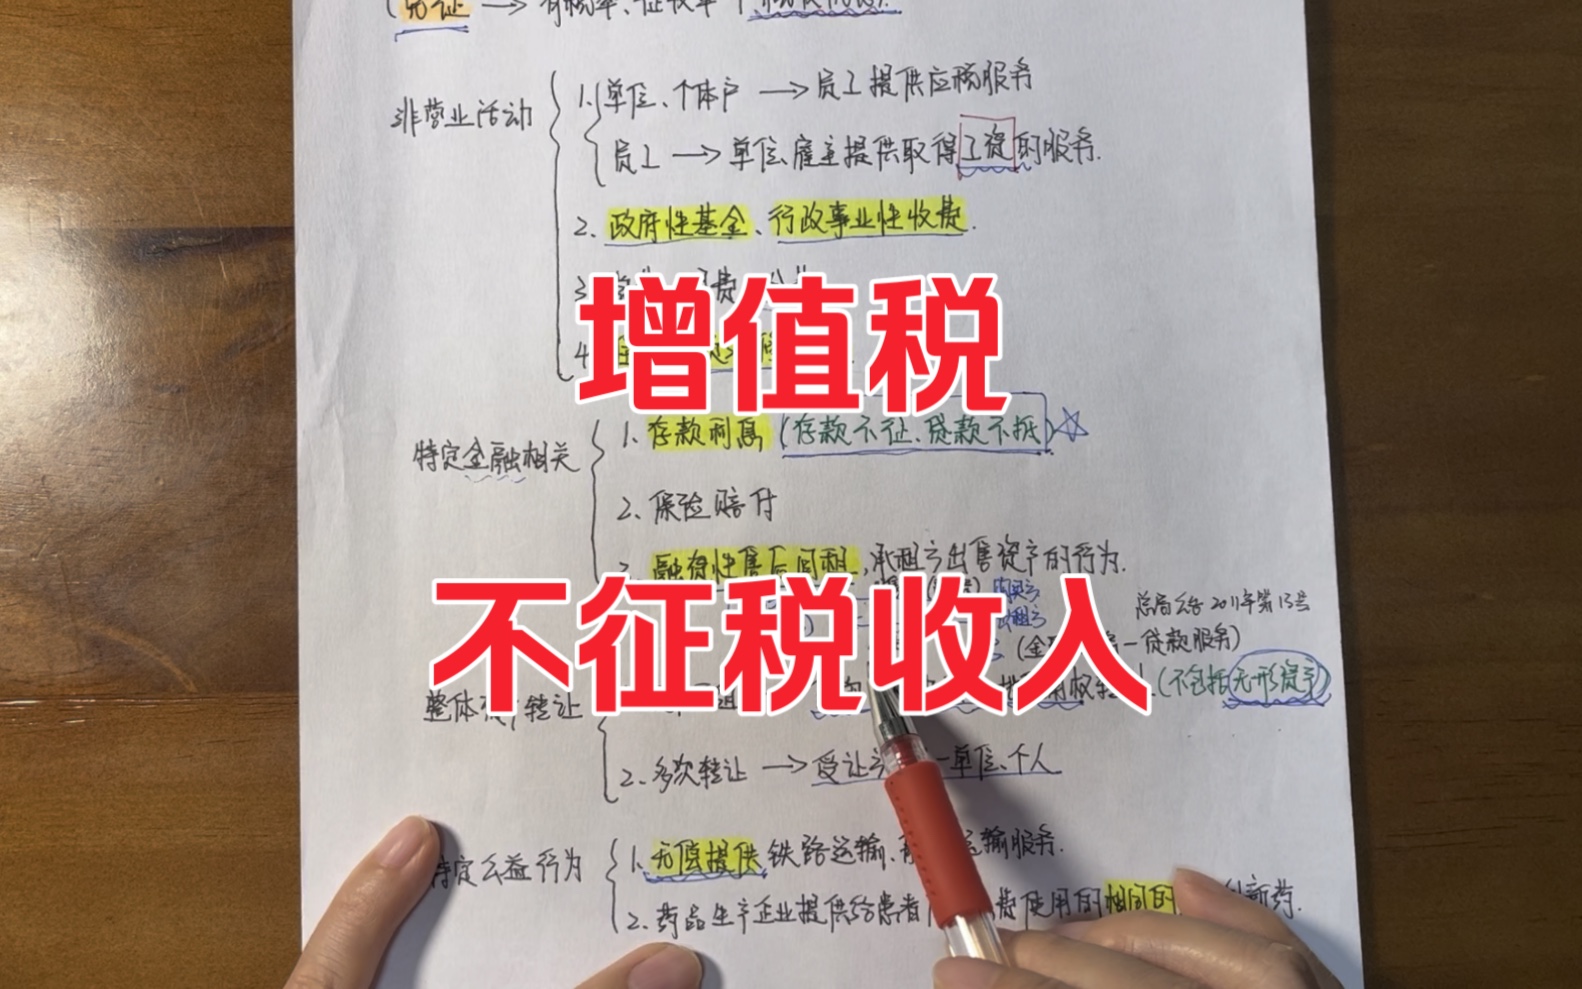 免征 → 有税率、征收率
非营业活动
1. 单位、个体户 → 员工提供应税服务
员工 → 单位、雇主提供取得工资的服务.
2. 政府性基金、行政事业性收费.
3
增值税
4
特定金融相关
1. 存款利息 (存款不征、贷款不抵)
2. 保险赔付
融资性售后回租, 承租方出售资产的行为.
不征税收入
总局公告 2011年第13号
贷款服务)
整体 转让
(不包括无形资产)
2. 多次转让 → 受让方 一单位、个人
特定公益行为
1. 无偿提供铁路运输、 运输服务.
2. 药品生产企业提供给患者 费使用的相同的 新药.